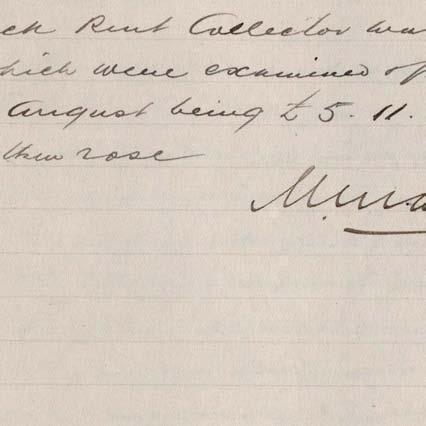 ck Rent Collector wa
hich were examined
August being £5.11.
then rose